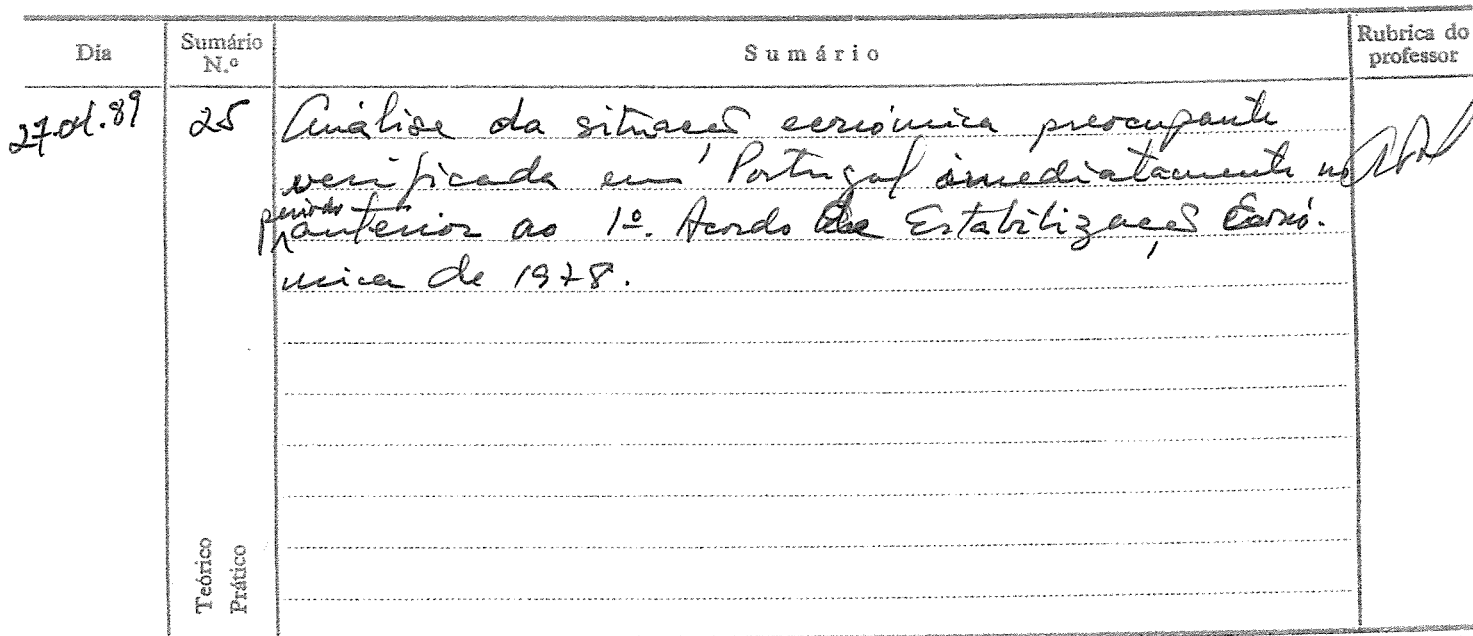 Dia Sumário N.º Sumário Rubrica do professor
27.01.89 25 Análise da situação económica preocupante
verificada em Portugal imediatamente no
período anterior ao 1º. Acordo de Estabilização Econó-
mica de 1978.
Teórico
Prático